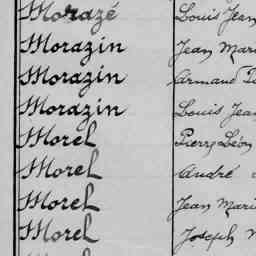 Morazé Louis Jean
Morazin Jean Mari
Morazin Armand
Morazin Louis Jea
Morel Pierre Léon
Morel André
Morel Jean Mari
Morel Joseph